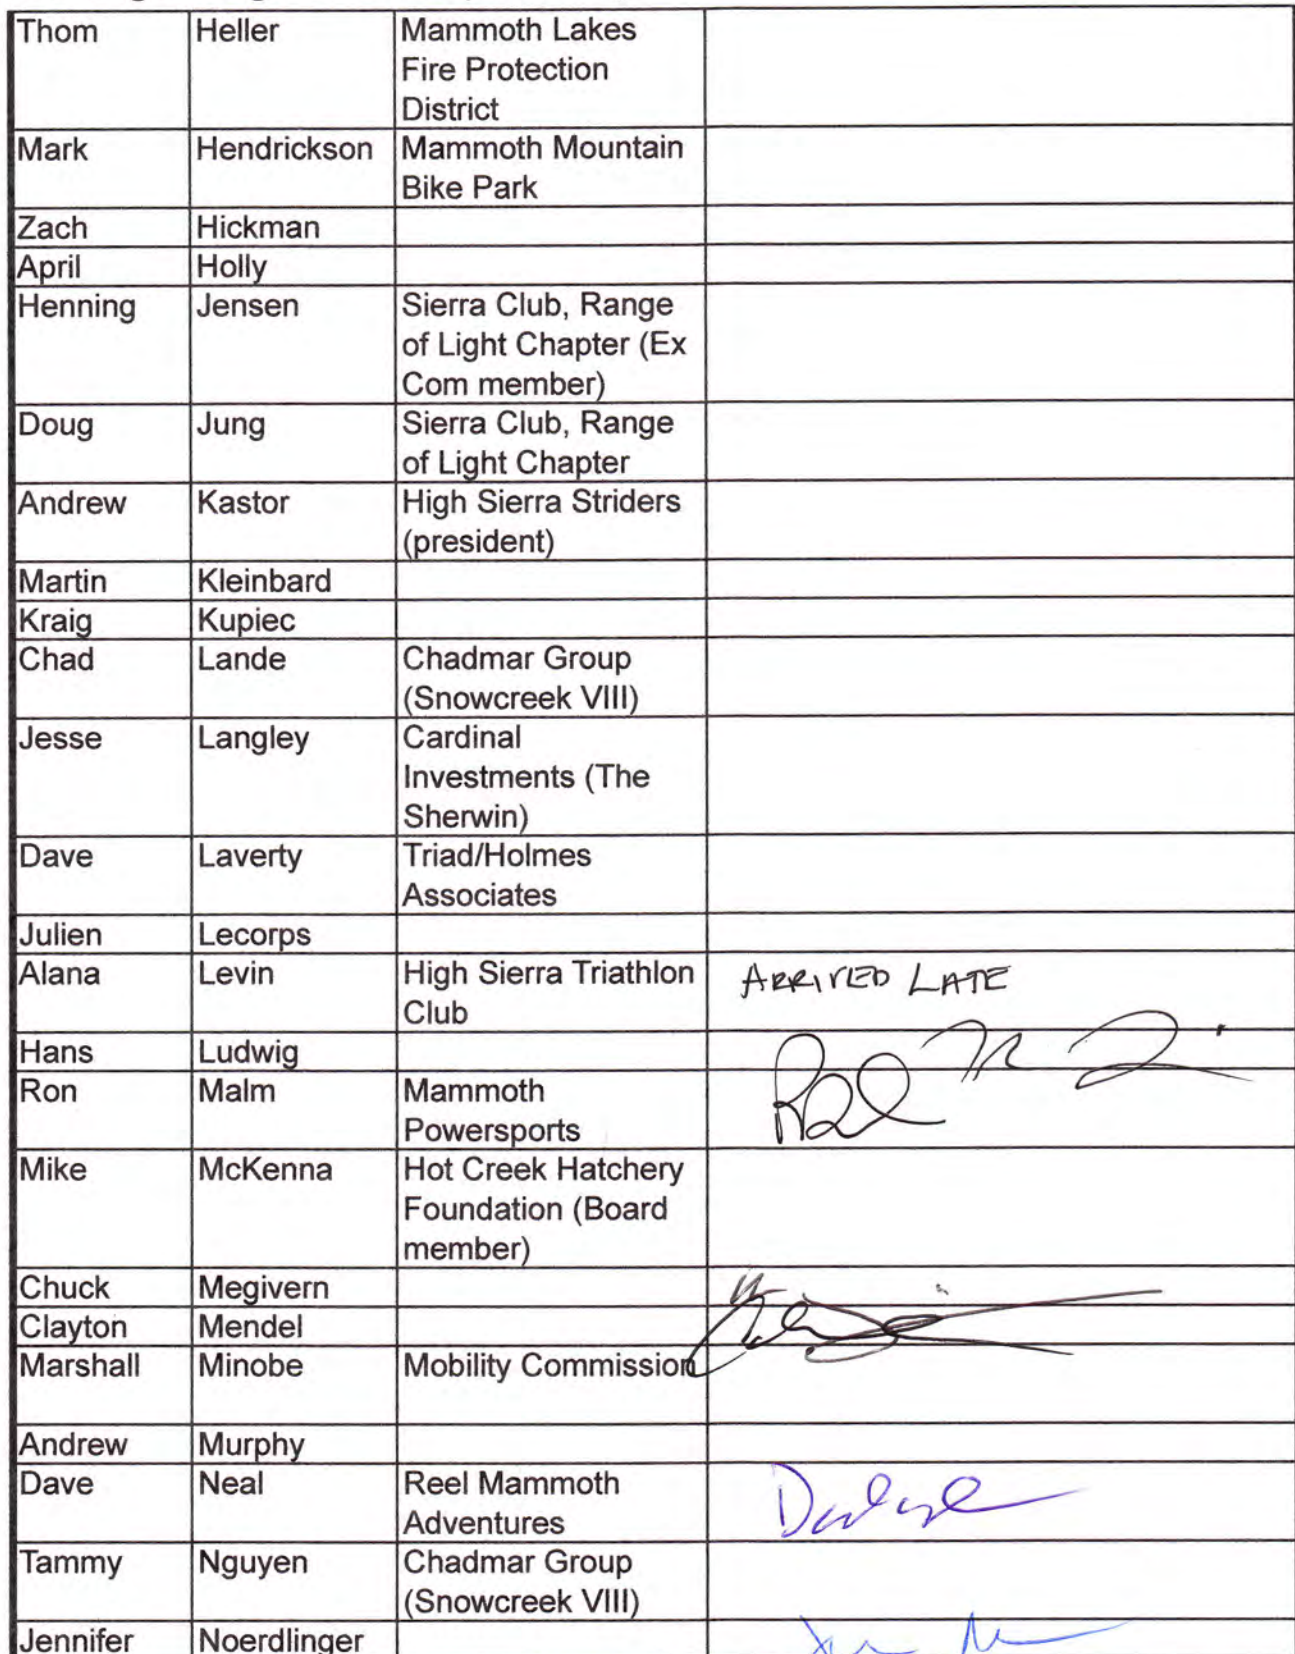 Thom Heller Mammoth Lakes
Fire Protection
District
Mark Hendrickson Mammoth Mountain
Bike Park
Zach Hickman
April Holly
Henning Jensen Sierra Club, Range
of Light Chapter (Ex
Com member)
Doug Jung Sierra Club, Range
of Light Chapter
Andrew Kastor High Sierra Striders
(president)
Martin Kleinbard
Kraig Kupiec
Chad Lande Chadmar Group
(Snowcreek VIII)
Jesse Langley Cardinal
Investments (The
Sherwin)
Dave Laverty Triad/Holmes
Associates
Julien Lecorps
Alana Levin High Sierra Triathlon ARRIVED LATE
Club
Hans Ludwig
Ron Malm Mammoth
Powersports
Mike McKenna Hot Creek Hatchery
Foundation (Board
member)
Chuck Megivern
Clayton Mendel
Marshall Minobe Mobility Commission
Andrew Murphy
Dave Neal Reel Mammoth
Adventures
Tammy Nguyen Chadmar Group
(Snowcreek VIII)
Jennifer Noerdlinger